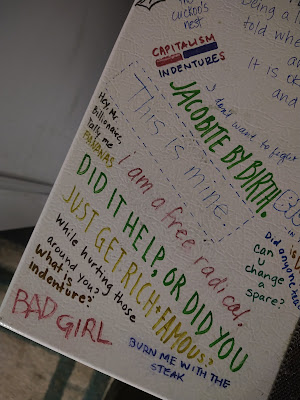 cuckoo's
nest
told
It is
CAPITALISM
INDENTURES
I don't want to fight
JACOBITE BY BIRTH.
This is mine.
Hey, Mr.
Billionaire,
me
BANANAS
I am a free radical.
DID IT HELP, OR DID YOU
JUST GET RICH + FAMOUS?
while hurting those
around you?
What,
indenture?
BAD GIRL
BURN ME WITH THE
STEAK
Did anyone
can
u
change
a
spare?